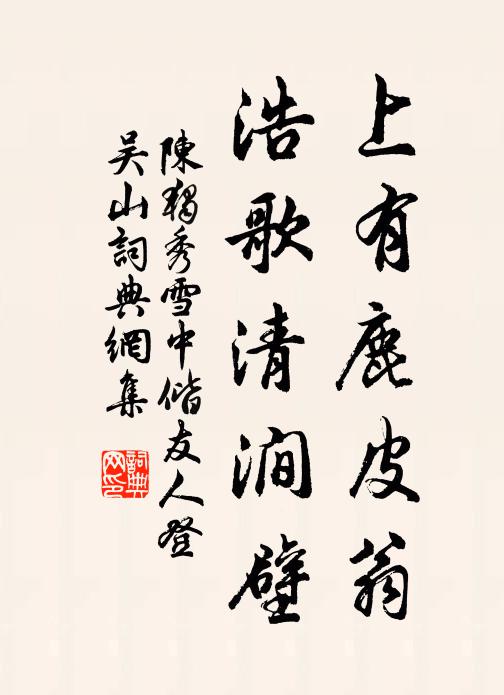 上有鹿皮翁
浩歌清澗壁
陳獨秀雪中偕友人登
吴山詞典網集
詞典网印